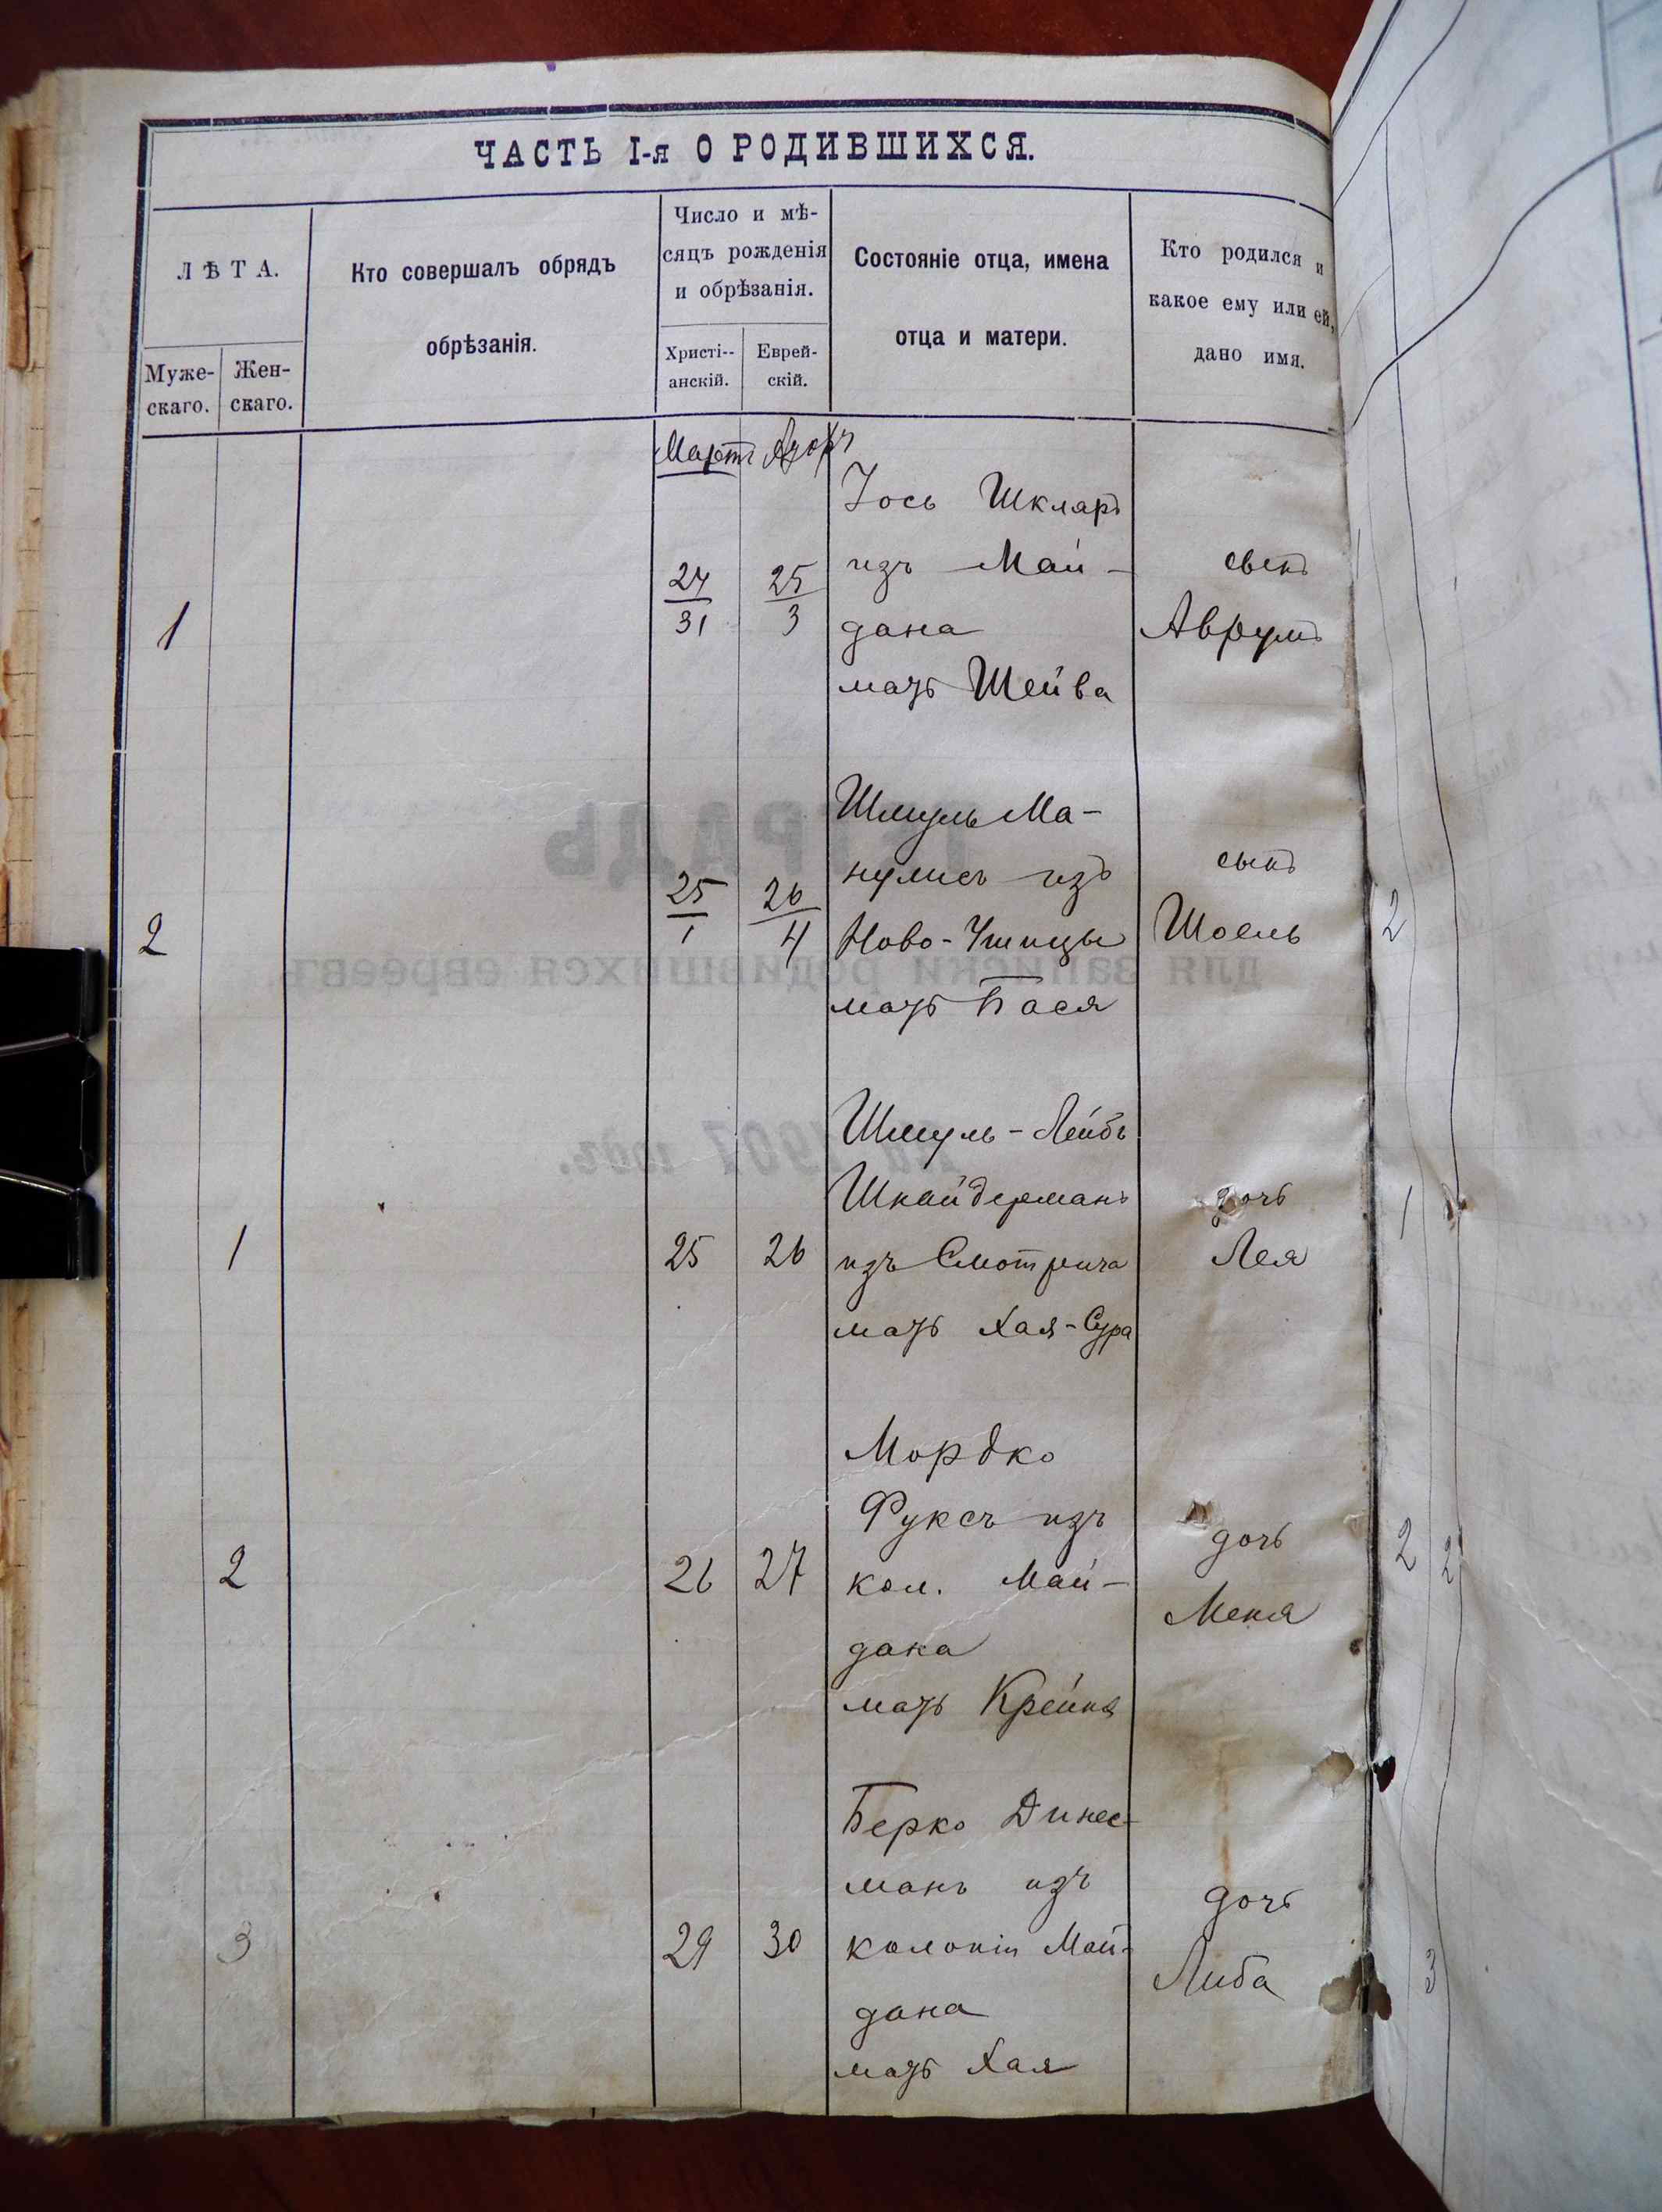 ЧАСТЬ I-я О РОДИВШИХСЯ.
ЛѢТА.
Муже-
скаго.
Жен-
скаго.
Кто совершалъ обрядъ
обрѣзанія.
Число и мѣ-
сяцъ рожденія
и обрѣзанія.
Христі--
анскій.
Еврей-
скій.
Состояніе отца, имена
отца и матери.
Кто родился и
какое ему или ей,
дано имя.
Мартъ
1
24
31
25
3
Іось Шкляръ
изъ Май-
дана
мать Шейва
сынъ
Аврумъ
2
25
1
26
4
Шмуль Ма-
нулисъ изъ
Ново-Ушицы
мать Бася
сынъ
Шоель
2
1
25
26
Шмуль-Лейбъ
Шнайдерманъ
изъ Смотрича
мать Хая-Сура
дочь
Лея
1
2
26
27
Мордко
Фуксъ изъ
кол. Май-
дана
мать Крейна
дочь
Меня
2
2
3
29
30
Берко Динес-
манъ изъ
колоніи Май-
дана
мать Хая
дочь
Либа
3
ТЕТРАДЬ
для записки родившихся евреевъ
на 1907 годъ.